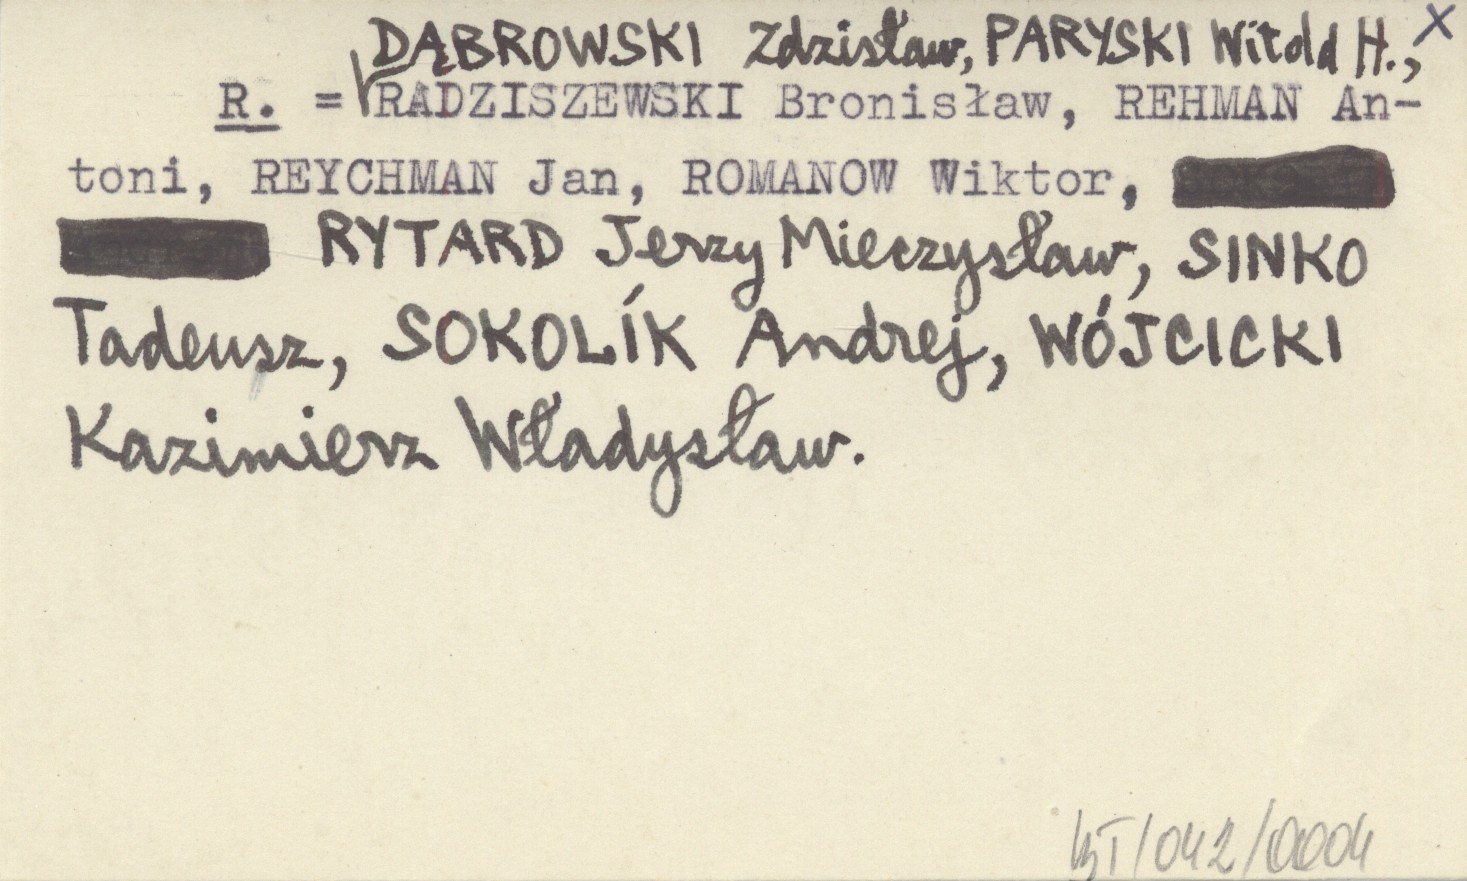 DĄBROWSKI Zdzisław, PARYSKI Witold H., x
R. = RADZISZEWSKI Bronisław, REHMAN An-
toni, REYCHMAN Jan, ROMANOW Wiktor,
RYTARD Jerzy Mieczysław, SINKO
Tadeusz, SOKOLÍK Andrej, WÓJCICKI
Kazimierz Władysław.
/042/0004